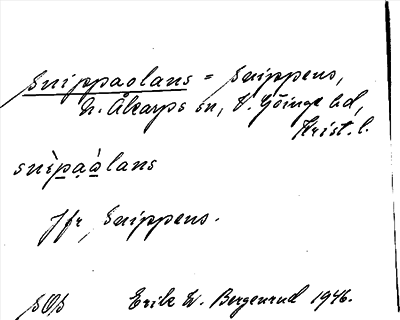 Snippaolans = Snippens,
N. Åkarps sn, V. Göinge hd,
Krist. l.
snìpa̠à̠lans
Jfr, Snippens.
Erik W. Bergenrud 1946.